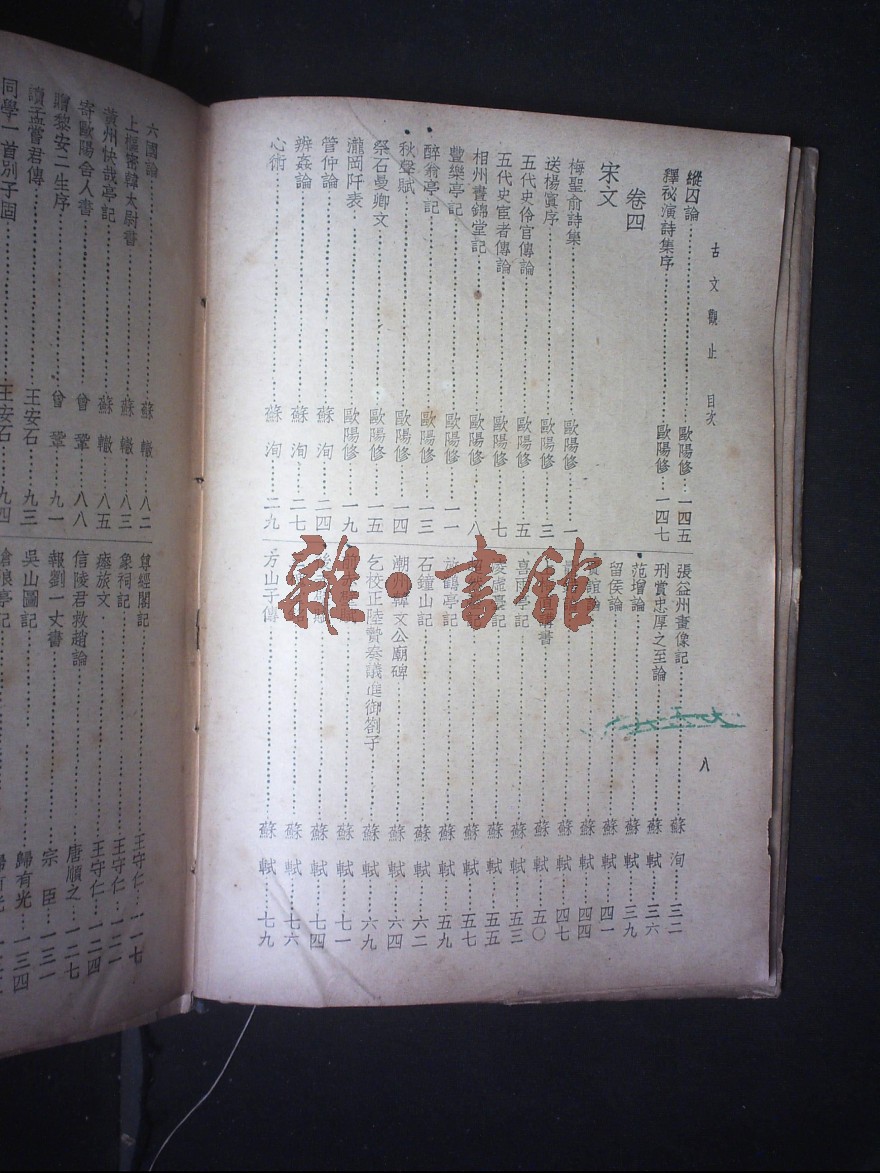 古文觀止 目次
縱囚論……歐陽修…一四五
釋祕演詩集序……歐陽修…一四七
卷四
宋文
梅聖俞詩集……歐陽修…一
送楊寘序……歐陽修…三
五代史伶官傳論……歐陽修…五
五代史宦者傳論……歐陽修…七
相州晝錦堂記……歐陽修…八
豐樂亭記……歐陽修…一一
醉翁亭記……歐陽修…一三
秋聲賦……歐陽修…一四
祭石曼卿文……歐陽修…一五
瀧岡阡表……歐陽修…一九
管仲論……蘇洵…二四
辨姦論……蘇洵…二七
心術……蘇洵…二九
張益州畫像記……蘇洵…三二
刑賞忠厚之至論……蘇軾…三六
范增論……蘇軾…三九
留侯論……蘇軾…四一
誼論……蘇軾…四四
……蘇軾…四七
書……蘇軾…五〇
喜雨亭記……蘇軾…五三
虛臺記……蘇軾…五五
記……蘇軾…五七
鶴亭記……蘇軾…五九
石鐘山記……蘇軾…六二
潮州韓文公廟碑……蘇軾…六四
乞校正陸贄奏議進御劄子……蘇軾…六九
……蘇軾…七一
……蘇軾…七四
……蘇軾…七六
方山子傳……蘇軾…七九
八
六國論……蘇轍…八二
上樞密韓太尉書……蘇轍…八三
黃州快哉亭記……蘇轍…八五
寄歐陽舍人書……曾鞏…八八
贈黎安二生序……曾鞏…九一
讀孟嘗君傳……王安石…九三
同學一首別子固……王安石…九四
尊經閣記……王守仁…一一七
象祠記……王守仁…一二一
瘞旅文……王守仁…一二四
信陵君救趙論……唐順之…一二七
報劉一丈書……宗臣…一三一
吳山圖記……歸有光…一三四
滄浪亭記……歸有光
雜·書館